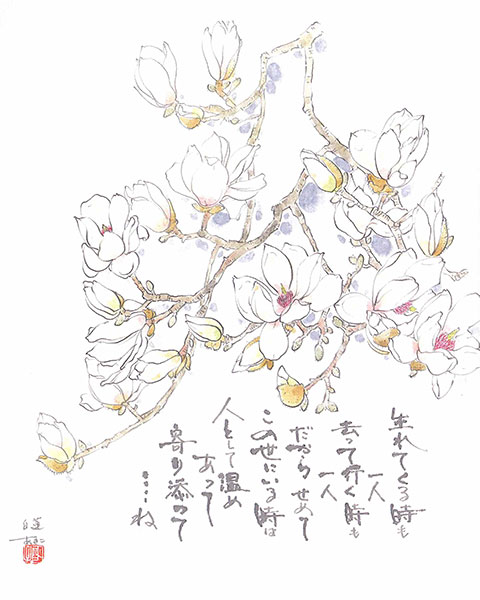 生れてくる時も
一人
去って行く時も
一人
だからせめて
この世にいる時は
人として温め
あって
寄り添って
…ね